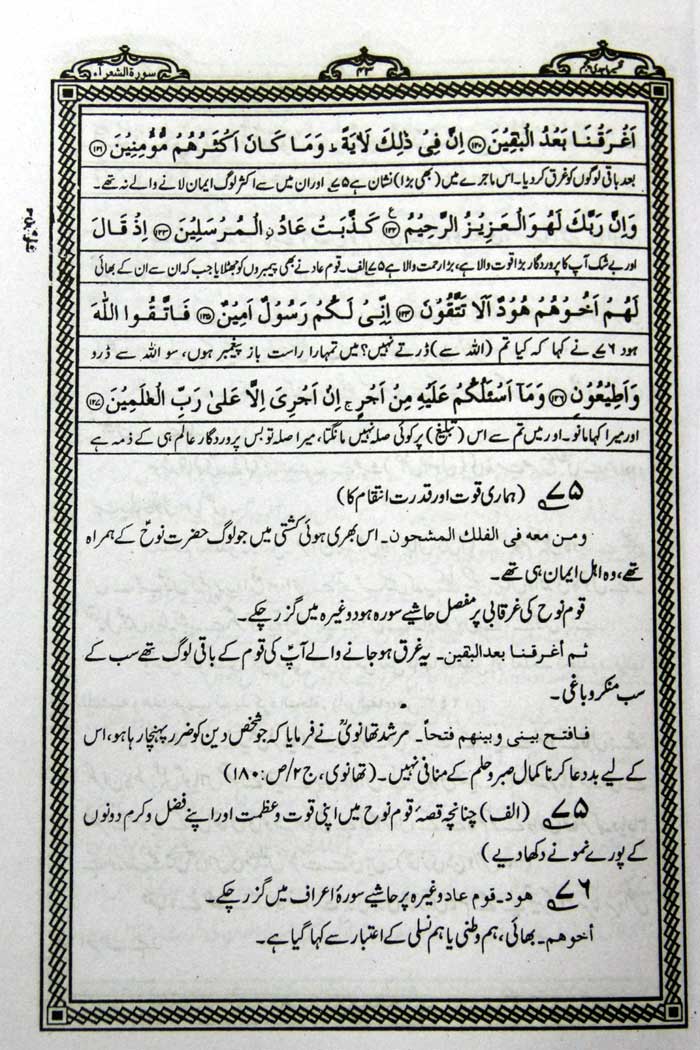 سورة الشعرآء
۴۳
اَغْرَقْنَا بَعْدُ الْبٰقِيْنَ ﴿۱۲۰﴾ اِنَّ فِىْ ذٰلِكَ لَاٰيَةً ؕ وَمَا كَانَ اَكْثَرُهُمْ مُّؤْمِنِيْنَ ﴿۱۲۱﴾
بعد باقی لوگوں کو غرق کردیا۔ اس ماجرے میں (بھی بڑا) نشان ہے ۷۵ اور ان میں سے اکثر لوگ ایمان لانے والے نہ تھے۔
وَاِنَّ رَبَّكَ لَهُوَ الْعَزِيْزُ الرَّحِيْمُ ﴿۱۲۲﴾ ع كَذَّبَتْ عَادُ ۨ الْمُرْسَلِيْنَ ﴿۱۲۳﴾ اِذْ قَالَ
اور بے شک آپ کا پروردگار بڑا قوت والا ہے، بڑا رحمت والا ہے ۷۵ الف۔ قوم عاد نے بھی پیمبروں کو جھٹلایا جب کہ ان سے ان کے بھائی
لَهُمْ اَخُوْهُمْ هُوْدٌ اَلَا تَتَّقُوْنَ ﴿۱۲۴﴾ اِنِّىْ لَكُمْ رَسُوْلٌ اَمِيْنٌ ﴿۱۲۵﴾ فَاتَّقُوا اللّٰهَ
ہود ۷۶ نے کہا کہ کیا تم (اللہ سے) ڈرتے نہیں؟ میں تمہارا راست باز پیغمبر ہوں، سو اللہ سے ڈرو
وَاَطِيْعُوْنِ ﴿۱۲۶﴾ وَمَاۤ اَسْـَٔلُكُمْ عَلَيْهِ مِنْ اَجْرٍ ۚ اِنْ اَجْرِىَ اِلَّا عَلٰى رَبِّ الْعٰلَمِيْنَ ﴿۱۲۷﴾
اور میرا کہا مانو۔ اور میں تم سے اس (تبلیغ) پر کوئی صلہ نہیں مانگتا، میرا صلہ تو بس پروردگار عالم ہی کے ذمہ ہے
۷۵ (ہماری قوت اور قدرت انتقام کا)
ومن معه فى الفلك المشحون۔ اس بھری ہوئی کشتی میں جو لوگ حضرت نوحؑ کے ہمراہ
تھے، وہ اہل ایمان ہی تھے۔
قوم نوح کی غرقابی پر مفصل حاشیے سورہ ہود وغیرہ میں گزر چکے۔
ثم أغرقنا بعد البقين۔ یہ غرق ہو جانے والے آپؑ کی قوم کے باقی لوگ تھے سب کے
سب منکر و باغی۔
فافتح بينى وبينهم فتحاً۔ مرشد تھانویؒ نے فرمایا کہ جو شخص دین کو ضرر پہنچا رہا ہو، اس
کے لیے بددعا کرنا کمال صبر و حلم کے منافی نہیں۔ (تھانوی، ج۲/ص:۱۸۰)
۷۵ (الف) چنانچہ قصۂ قوم نوح میں اپنی قوت و عظمت اور اپنے فضل و کرم دونوں
کے پورے نمونے دکھا دیے)
۷۶ هود۔ قوم عاد وغیرہ پر حاشیے سورۂ اعراف میں گزر چکے۔
أخوهم۔ بھائی، ہم وطنی یا ہم نسلی کے اعتبار سے کہا گیا ہے۔